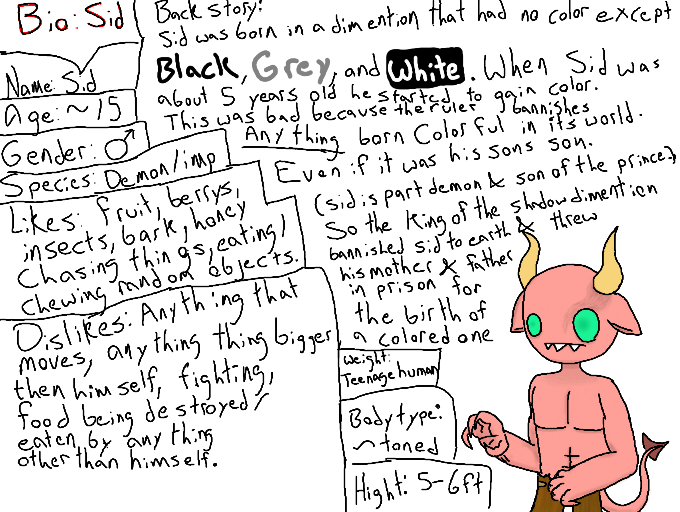 Bio: Sid
Name: Sid
Age: ~15
Gender: ♂
Species: Demon/imp
Likes: fruit, berrys,
insects, bark, honey
Chasing things, eating/
chewing random objects.
Dislikes: Anything that
moves, anything thing bigger
then himself, fighting,
food being destroyed/
eaten by anything
other than himself.
Back story:
Sid was born in a dimention that had no color except
Black, Grey, and White. When Sid was
about 5 years old he started to gain color.
This was bad because the ruler bannishes
Anything born Colorful in its world.
Even if it was his sons son.
(sid is part demon & son of the prince)
So the King of the shadow dimention
bannished sid to earth & threw
his mother & father
in prison for
the birth of
a colored one
weight:
Teenage human
Body type:
~toned
Hight: 5-6ft